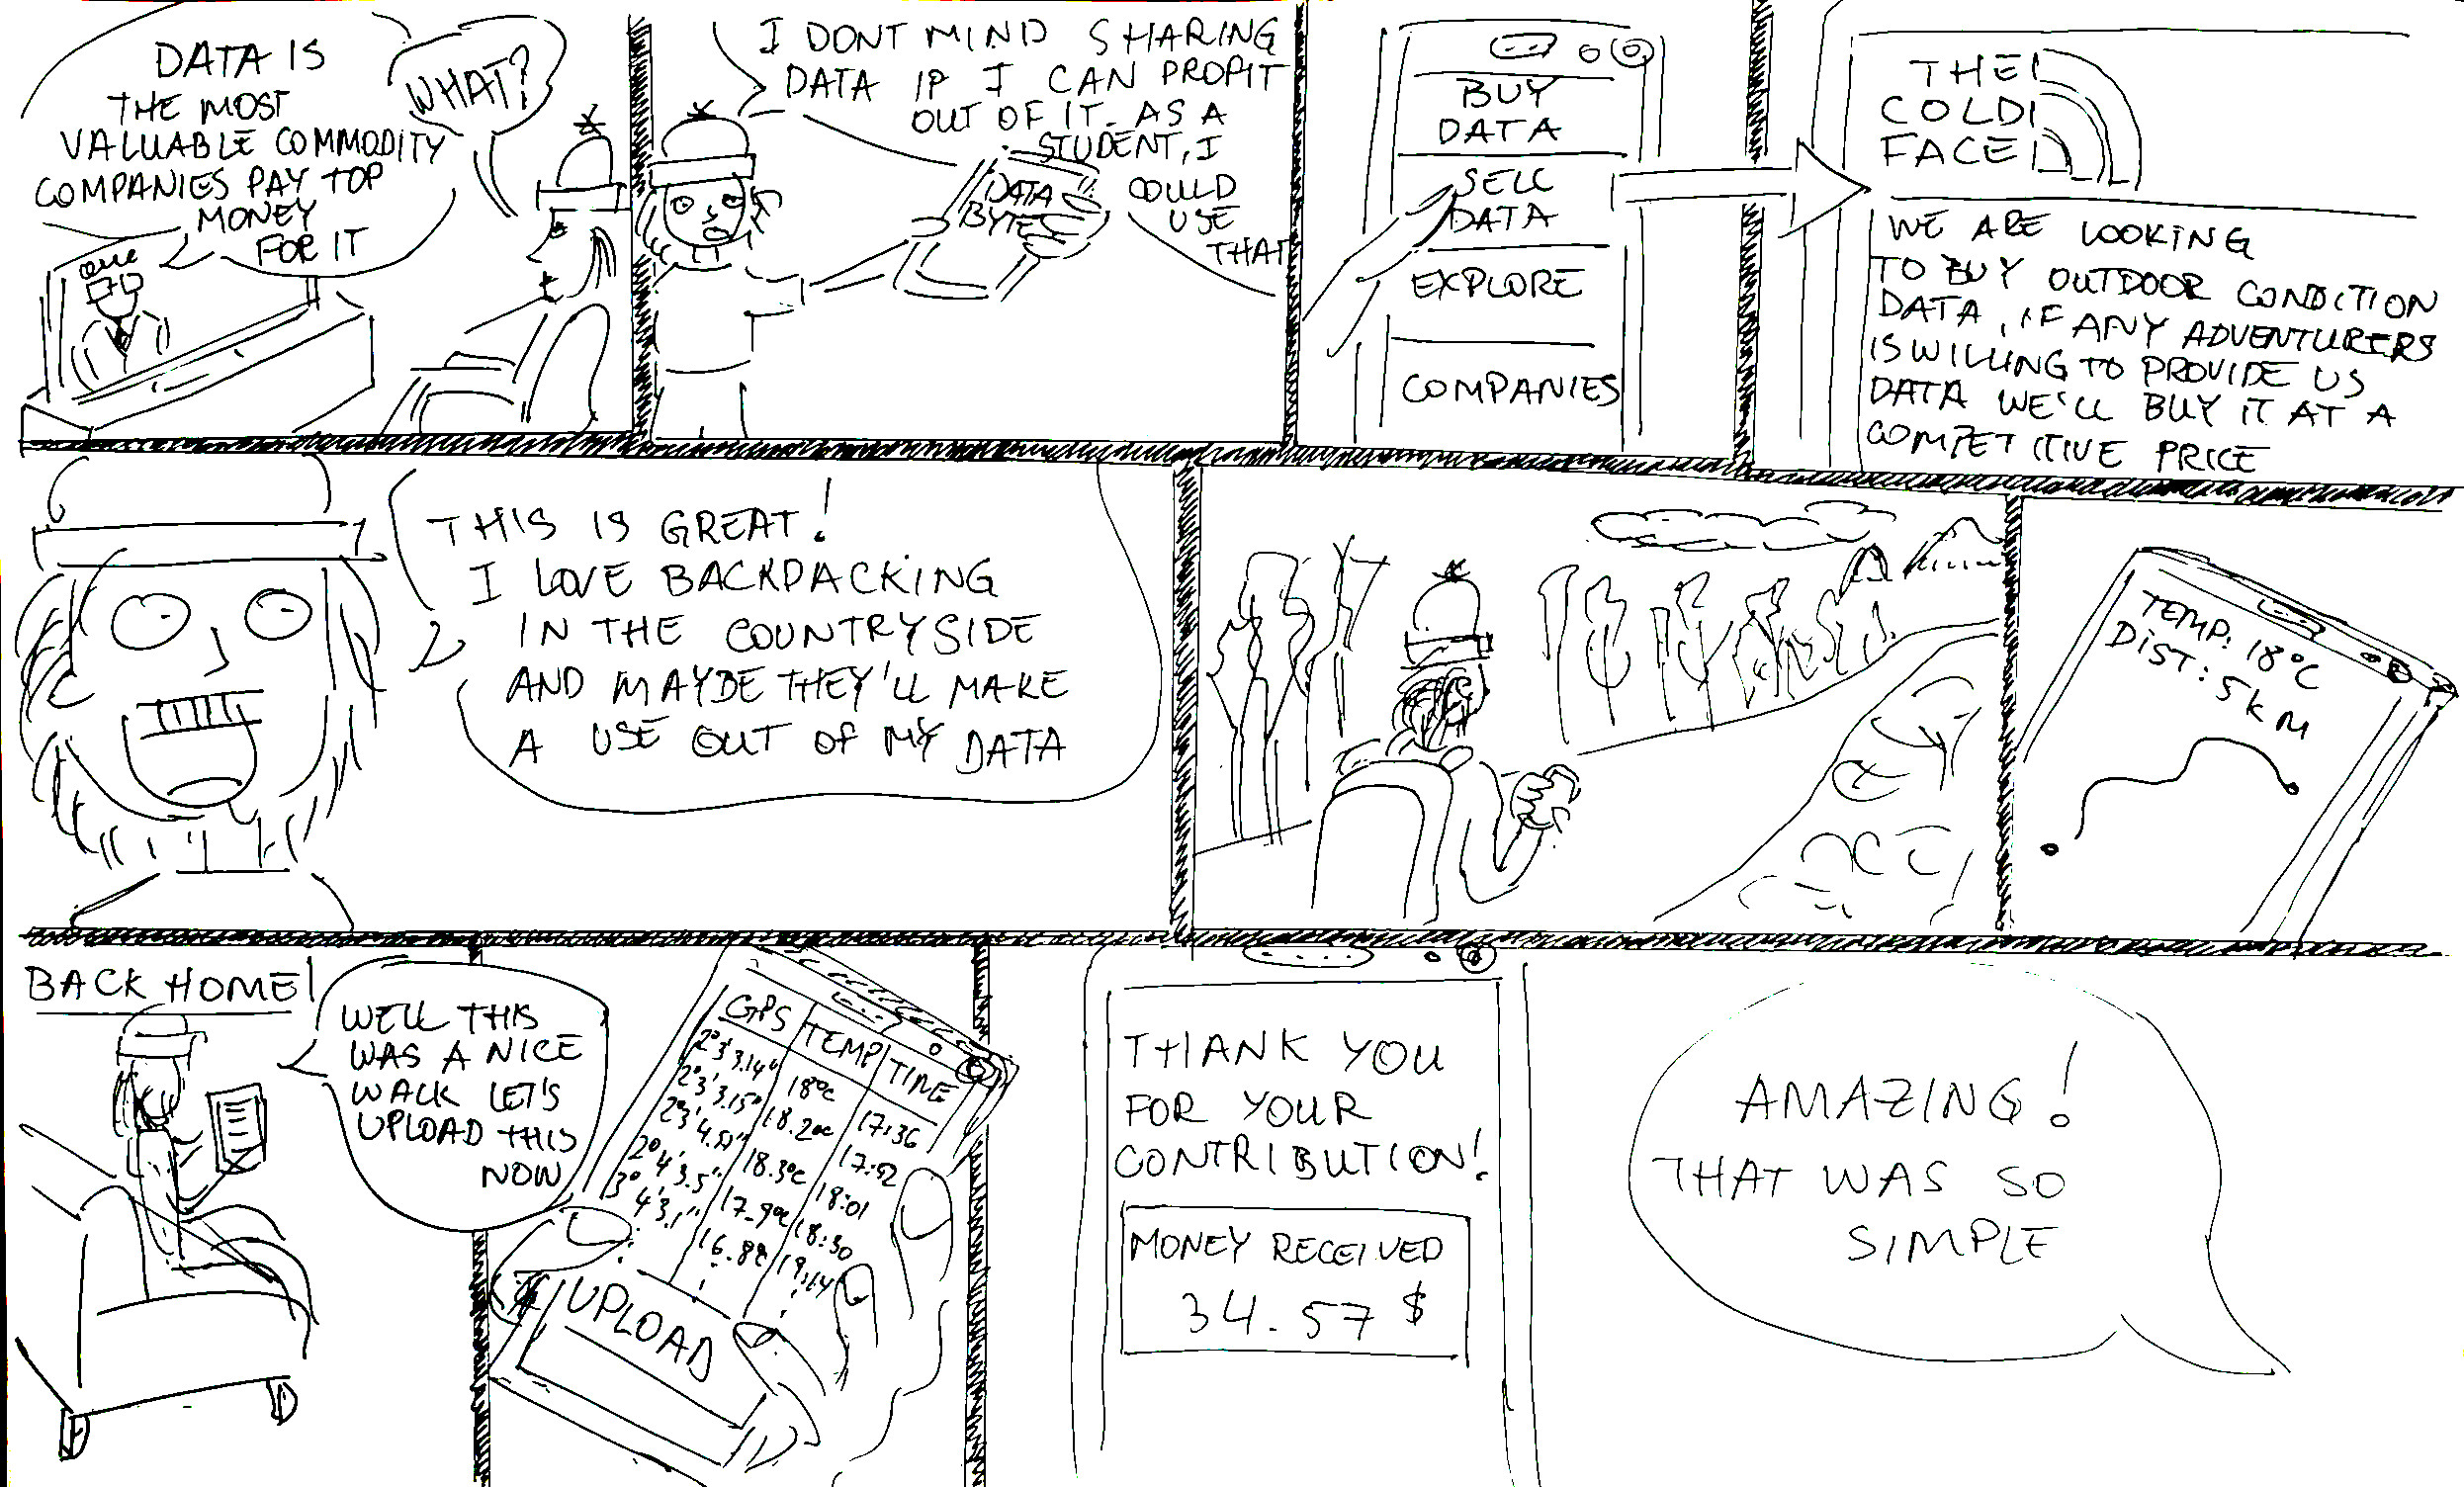 DATA IS
THE MOST
VALUABLE COMMODITY
COMPANIES PAY TOP
MONEY
FOR IT
WHAT?
I DONT MIND SHARING
DATA IF I CAN PROFIT
OUT OF IT. AS A
STUDENT, I
COULD
USE
THAT
DATA
BYTES
BUY
DATA
SELL
DATA
EXPLORE
COMPANIES
THE
COLD
FACE
WE ARE LOOKING
TO BUY OUTDOOR CONDITION
DATA, IF ANY ADVENTURERS
IS WILLING TO PROVIDE US
DATA WE'LL BUY IT AT A
COMPETITIVE PRICE
THIS IS GREAT!
I LOVE BACKPACKING
IN THE COUNTRYSIDE
AND MAYBE THEY'LL MAKE
A USE OUT OF MY DATA
TEMP: 18°C
DIST: 5KM
BACK HOME!
WELL THIS
WAS A NICE
WALK LET'S
UPLOAD THIS
NOW
GPS TEMP TIME
2°3'3.14" 18°C 17:36
2°3'3.15" 18.2°C 17:52
2°3'4.51" 18.3°C 18:01
2°4'3.5" 17.9°C 18:30
3°4'3.1" 16.8°C 19:14
UPLOAD
THANK YOU
FOR YOUR
CONTRIBUTION!
MONEY RECEIVED
34.57 $
AMAZING!
THAT WAS SO
SIMPLE